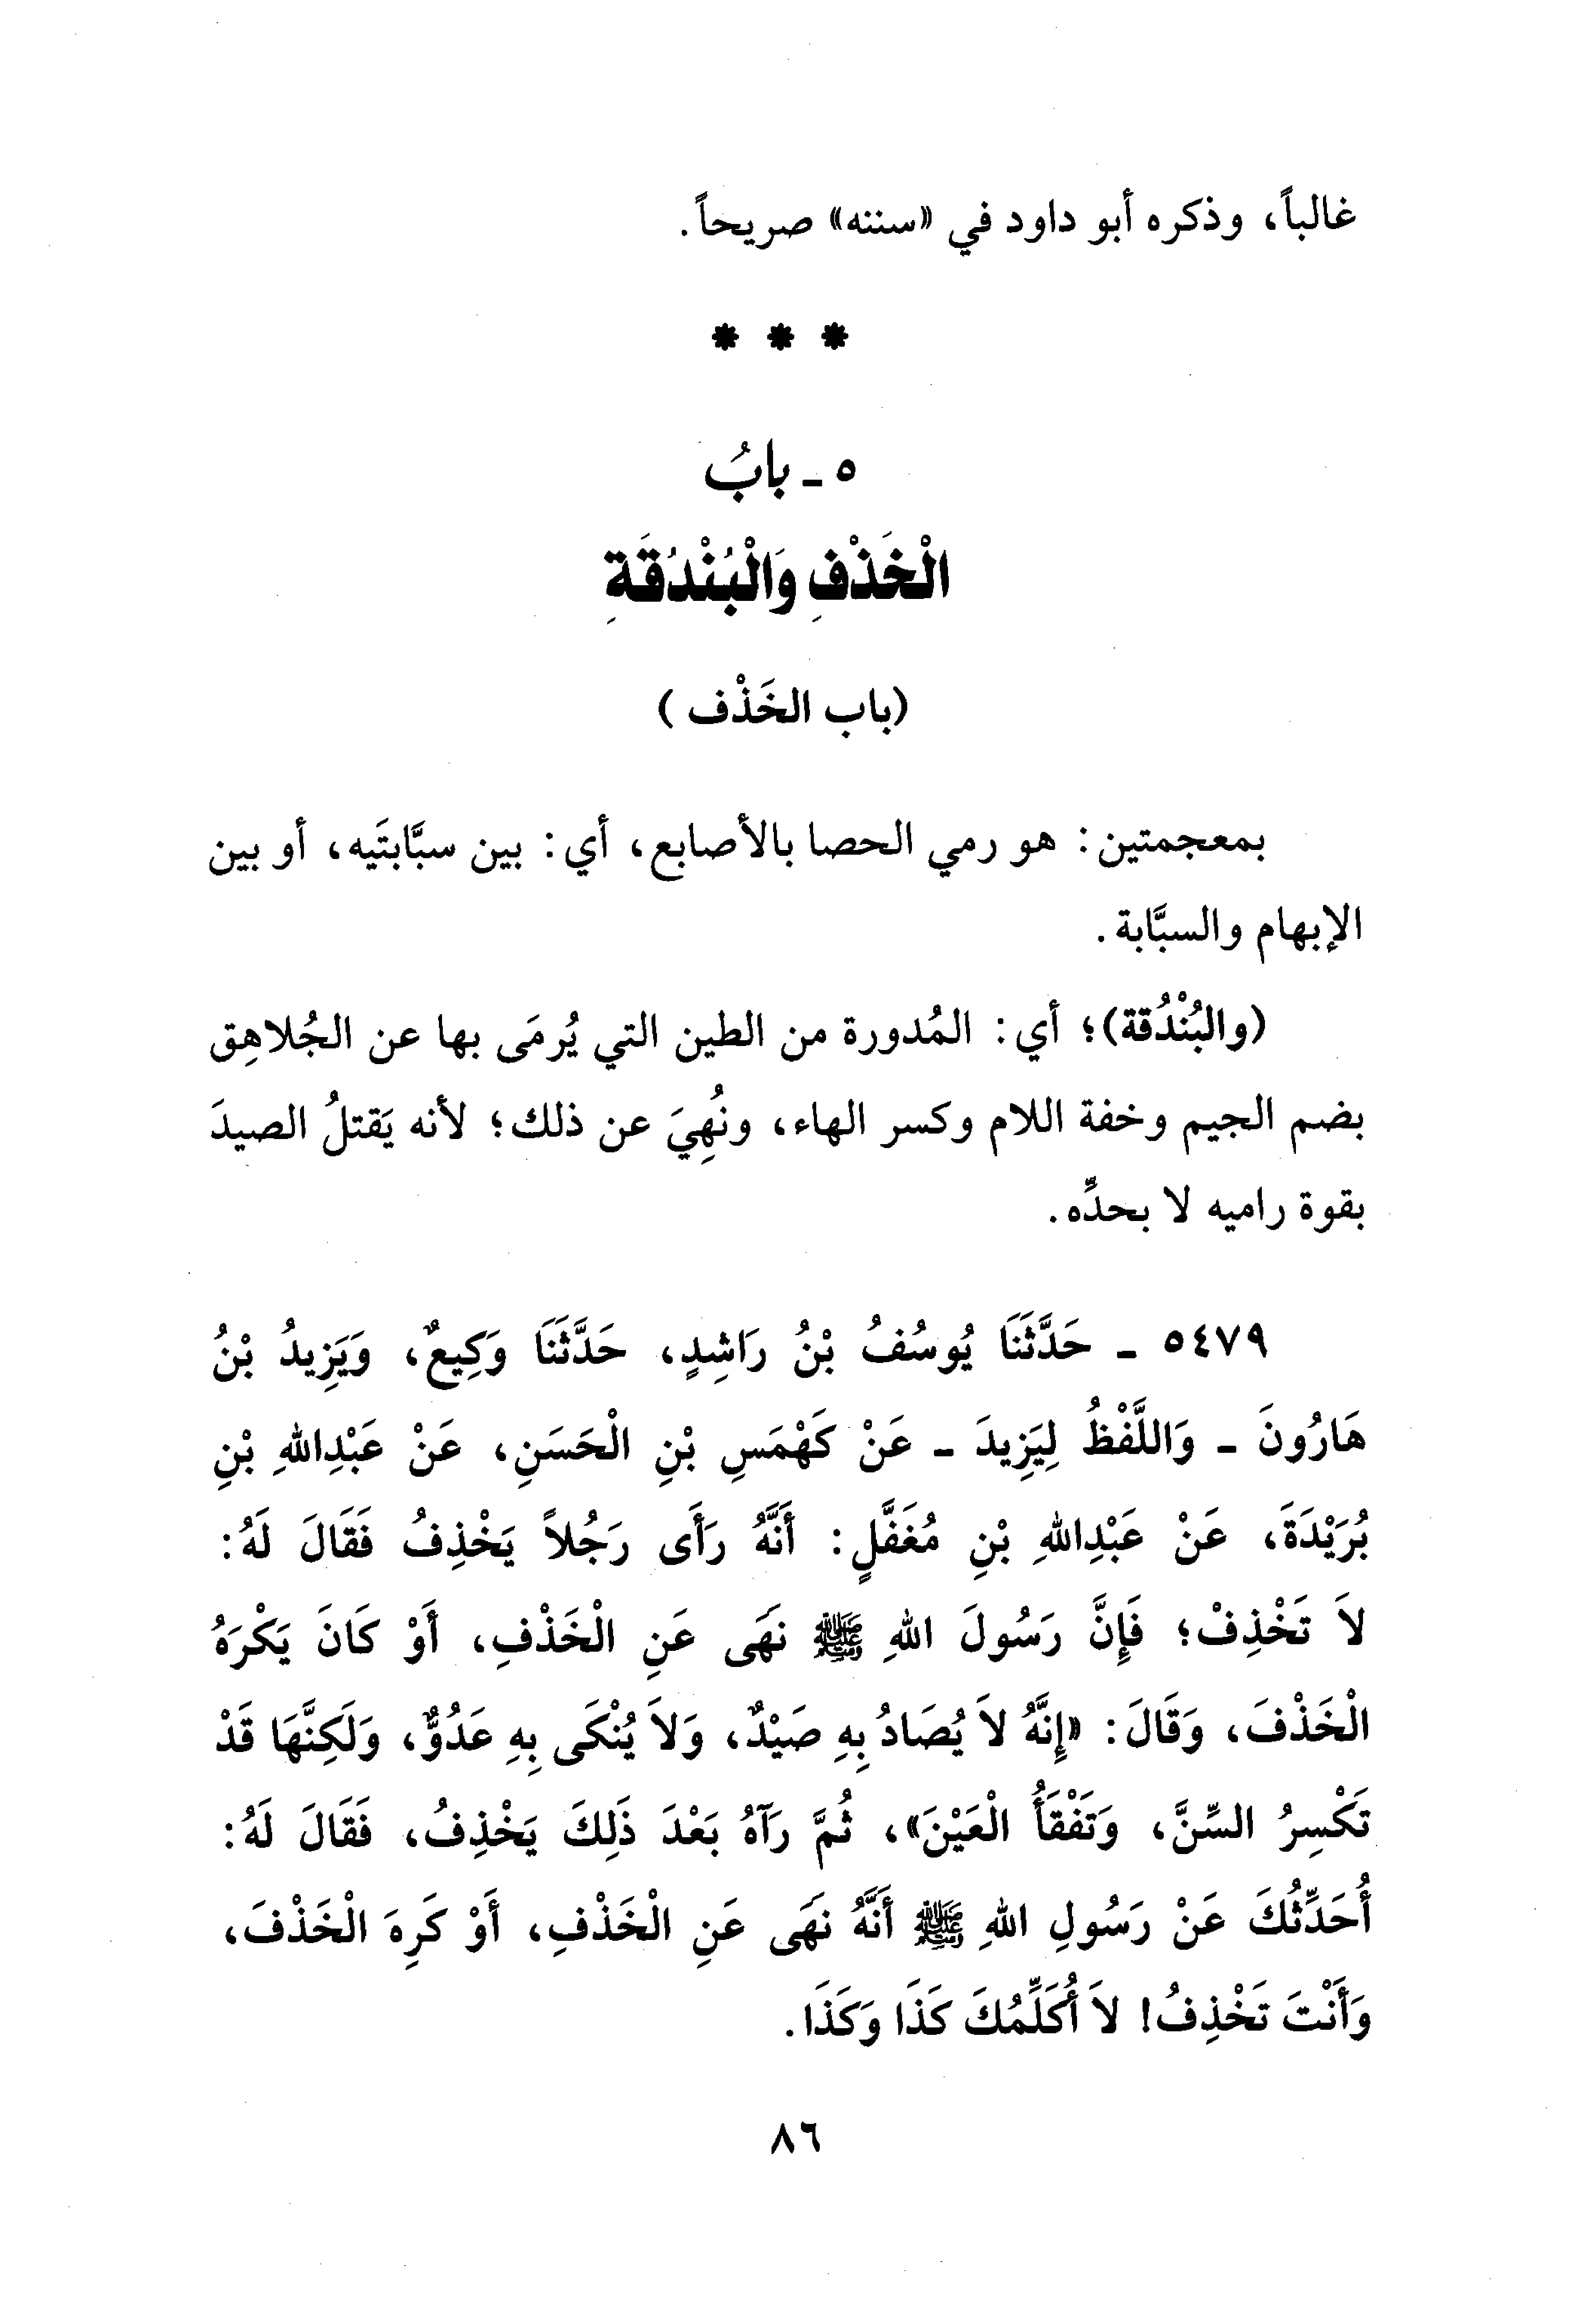 غالباً، وذكره أبو داود في «سننه» صريحاً.
* * *
٥ ـ بابُ
الْخَذْفِ وَالْبُنْدُقَةِ
(باب الخَذْف)
بمعجمتين: هو رمي الحصا بالأصابع، أي: بين سبَّابتَيه، أو بين
الإبهام والسبَّابة.
(والبُنْدُقة)؛ أي: المُدورة من الطين التي يُرمَى بها عن الجُلاهِق
بضم الجيم وخفة اللام وكسر الهاء، ونُهِيَ عن ذلك؛ لأنه يَقتلُ الصيدَ
بقوة راميه لا بحدِّه.
٥٤٧٩ ـ حَدَّثَنَا يُوسُفُ بْنُ رَاشِدٍ، حَدَّثَنَا وَكِيعٌ، وَيَزِيدُ بْنُ
هَارُونَ ـ وَاللَّفْظُ لِيَزِيدَ ـ عَنْ كَهْمَسِ بْنِ الْحَسَنِ، عَنْ عَبْدِاللهِ بْنِ
بُرَيْدَةَ، عَنْ عَبْدِاللهِ بْنِ مُغَفَّلٍ: أَنَّهُ رَأَى رَجُلاً يَخْذِفُ فَقَالَ لَهُ:
لاَ تَخْذِفْ؛ فَإِنَّ رَسُولَ اللهِ ﷺ نَهَى عَنِ الْخَذْفِ، أَوْ كَانَ يَكْرَهُ
الْخَذْفَ، وَقَالَ: «إِنَّهُ لاَ يُصَادُ بِهِ صَيْدٌ، وَلاَ يُنْكَى بِهِ عَدُوٌّ، وَلَكِنَّهَا قَدْ
تَكْسِرُ السِّنَّ، وَتَفْقَأُ الْعَيْنَ»، ثُمَّ رَآهُ بَعْدَ ذَلِكَ يَخْذِفُ، فَقَالَ لَهُ:
أُحَدِّثُكَ عَنْ رَسُولِ اللهِ ﷺ أَنَّهُ نَهَى عَنِ الْخَذْفِ، أَوْ كَرِهَ الْخَذْفَ،
وَأَنْتَ تَخْذِفُ! لاَ أُكَلِّمُكَ كَذَا وَكَذَا.
٨٦